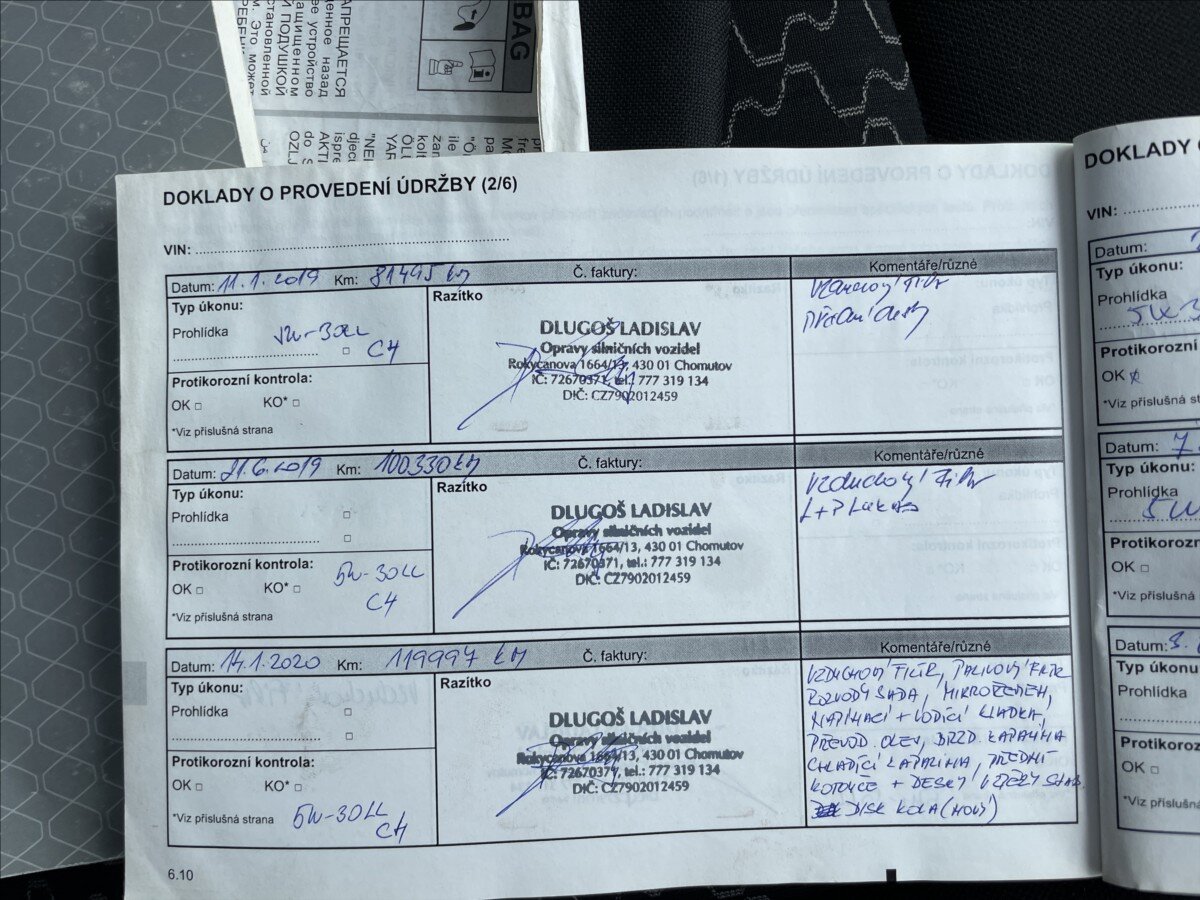 BAG
АПРЕЩАЕТСЯ
енное назад
ее устройство
ащищенном
Й ПОДУШКОЙ
становленной
м. Это может
РЕБЕН
DOKLADY O PROVEDENÍ ÚDRŽBY (2/6)
VIN:
Datum: 11.1.2019 Km: 81495 km Č. faktury: Komentáře/různé
Typ úkonu:
Prohlídka
5W-30LL
C4
Protikorozní kontrola:
OK □ KO* □
*Viz příslušná strana
Razítko
DLUGOŠ LADISLAV
Opravy silničních vozidel
Rokycanova 1664/13, 430 01 Chomutov
IČ: 72670371, tel.: 777 319 134
DIČ: CZ7902012459
Vzduchový filtr
přední desky
Datum: 21.6.2019 Km: 100330 km Č. faktury: Komentáře/různé
Typ úkonu:
Prohlídka
Protikorozní kontrola:
OK □ KO* □
5W-30LL
C4
*Viz příslušná strana
Razítko
DLUGOŠ LADISLAV
Opravy silničních vozidel
Rokycanova 1664/13, 430 01 Chomutov
IČ: 72670371, tel.: 777 319 134
DIČ: CZ7902012459
Vzduchový filtr
Datum: 14.1.2020 Km: 119997 km Č. faktury: Komentáře/různé
Typ úkonu:
Prohlídka
Protikorozní kontrola:
OK □ KO* □
*Viz příslušná strana
5W-30LL
C4
Razítko
DLUGOŠ LADISLAV
Opravy silničních vozidel
Rokycanova 1664/13, 430 01 Chomutov
IČ: 72670371, tel.: 777 319 134
DIČ: CZ7902012459
VZDUCHOVÝ FILTR, PALIVOVÝ FILTR
ROZVODY SADA, MIKROŘEMEN,
NAPÍNACÍ + VODÍCÍ KLADKA,
PŘEVOD. OLEJ, BRZD. KAPALINA
CHLADÍCÍ KAPALINA, PŘEDNÍ
KOTOUČE + DESKY, VZPĚRY STAB.
DISK KOLA (NOVÝ)
6.10
DOKLADY
VIN:
Datum:
Typ úkonu:
Prohlídka
Protikorozní
OK
*Viz příslušná s
Datum: 7.
Typ úkonu:
Prohlídka
5W
Protikorozní
OK □
*Viz příslušná
Datum:
Typ úkonu
Prohlídka
Protikoro
OK □
*Viz přísluš